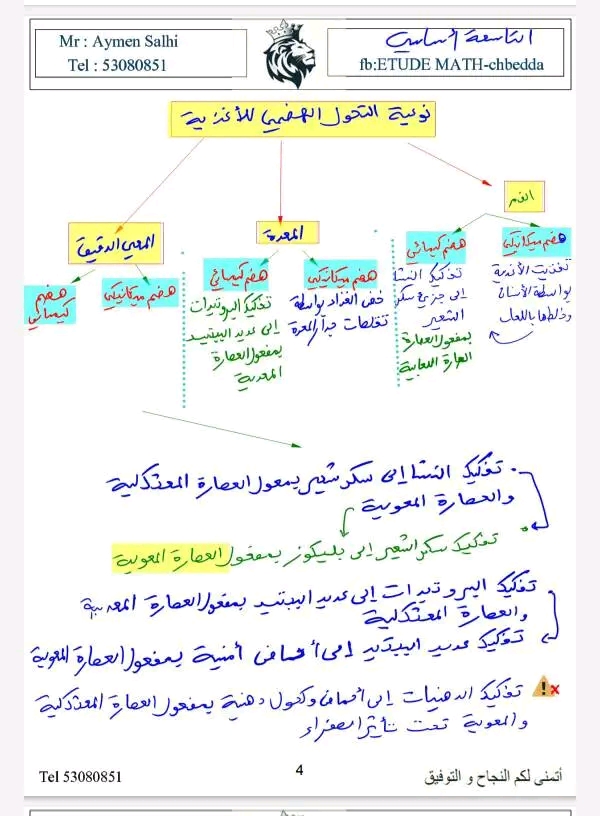 Mr : Aymen Salhi
Tel : 53080851
التاسعة أساسي
fb:ETUDE MATH-chbedda
نوعية التحول الهضمي للأغذية
الفم
هضم ميكانيكي
تفتيت الأغذية
بواسطة الأسنان
وخلطها باللعاب
هضم كيميائي
تفكيك النشا
إلى جزيئ سكر
الشعير
بمفعول العصارة
اللعابية
المعدة
هضم ميكانيكي
خض الغذاء بواسطة
تقلصات جدار المعدة
هضم كيميائي
تفكيك البروتيدات
إلى عديد الببتيد
بمفعول العصارة
المعدية
المعي الدقيق
هضم ميكانيكي
هضم
كيميائي
تفكيك النشا إلى سكر شعير بمفعول العصارة المعثكلية
والعصارة المعوية
تفكيك سكر الشعير إلى بمفعول العصارة المعوية
تفكيك البروتيدات إلى عديد الببتيد بمفعول العصارة المعدية
والعصارة المعثكلية
تفكيك عديد الببتيد إلى أحماض أمنية بمفعول العصارة المعوية
تفكيك الدهنيات إلى أحماض وكحول دهنية بمفعول العصارة المعثكلية
والمعوية تحت تأثير الصفراء
Tel 53080851
4
أتمنى لكم النجاح و التوفيق